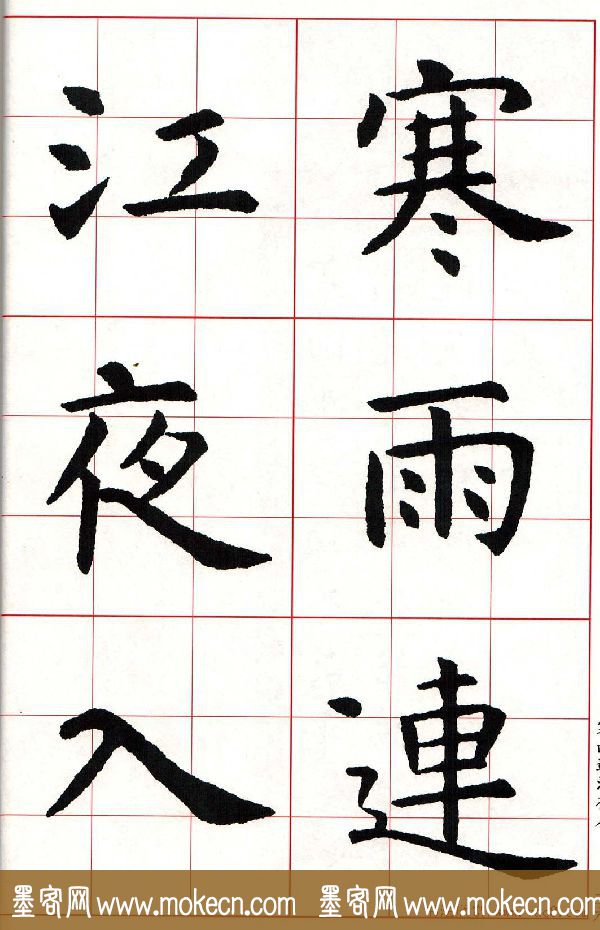 寒雨連
江夜入
墨客网 www.mokecn.com 墨客网 www.mokecn.com